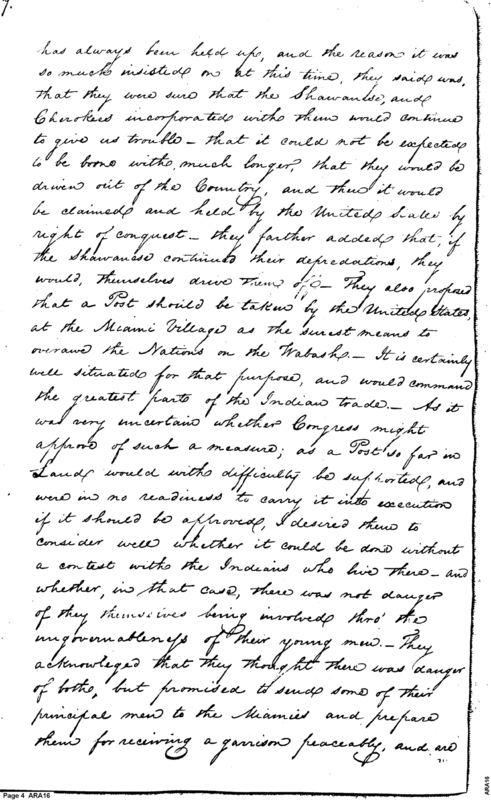 7.
has always been held up, and the reason it was
so much insisted on at this time, they said was,
that they were sure that the Shawanese, and
Cherokees incorporated with them would continue
to give us trouble – that it could not be expected
to be borne with much longer, that they would be
driven out of the Country, and then it would
be claimed and held by the United States by
right of conquest – they farther added that, if
the Shawanese continued their depredations, they
would, themselves drive them off – They also proposed
that a Post should be taken by the United States,
at the Miami Village as the surest means to
overawe the Nations on the Wabash. – It is certainly
well situated for that purpose, and would command
the greatest part of the Indian trade. – As it
was very uncertain whether Congress might
approve of such a measure; as a Post so far in
Land would with difficulty be supported, and
were in no readiness to carry it into execution
if it should be approved, I desired them to
consider well whether it could be done without
a contest with the Indians who live there – and
whether, in that case, there was not danger
of they themselves being involved thro' the
ungovernableness of their young men. – They
acknowleged that they thought there was danger
of both, but promised to send some of their
principal men to the Miamies and prepare
them for receiving a garrison peaceably, and are
Page 4 ARA16
ARA16